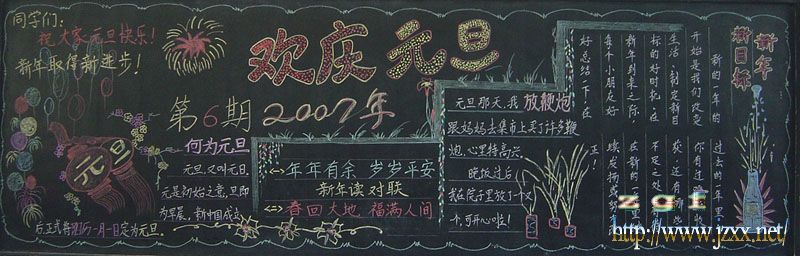 同学们：
祝大家元旦快乐！
新年取得新进步！
欢庆元旦
第6期 2007年
元旦
何为元旦
元旦，又叫元日，
元是初始之意，旦即
为早晨，新中国成立
后正式将阳历一月一日定为元旦。
<一> 年年有余 岁岁平安
新年读对联
<二> 春回大地 福满人间
元旦那天，我放鞭炮
跟妈妈去集市上买了许多鞭
炮，心里特高兴。
晚饭过后，
我在院子里放了一个又
一个，可开心啦！
新年
新目标
新的一年的
开始是我们改变
生活，制定新目
标的好时机，在
新年到来之际，
每个小朋友好
好总结一下，在
过去的一年里，
你有过哪些收
获，还有哪些
不足之处
在新的一年里
继发扬或努
正！
zgf
http://www.jzxx.net